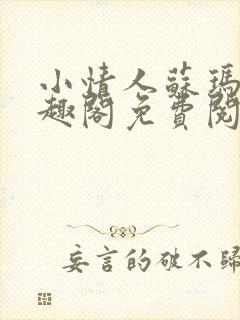 小情人蘇瑪
趣閣免費閱
妄言的破不歸